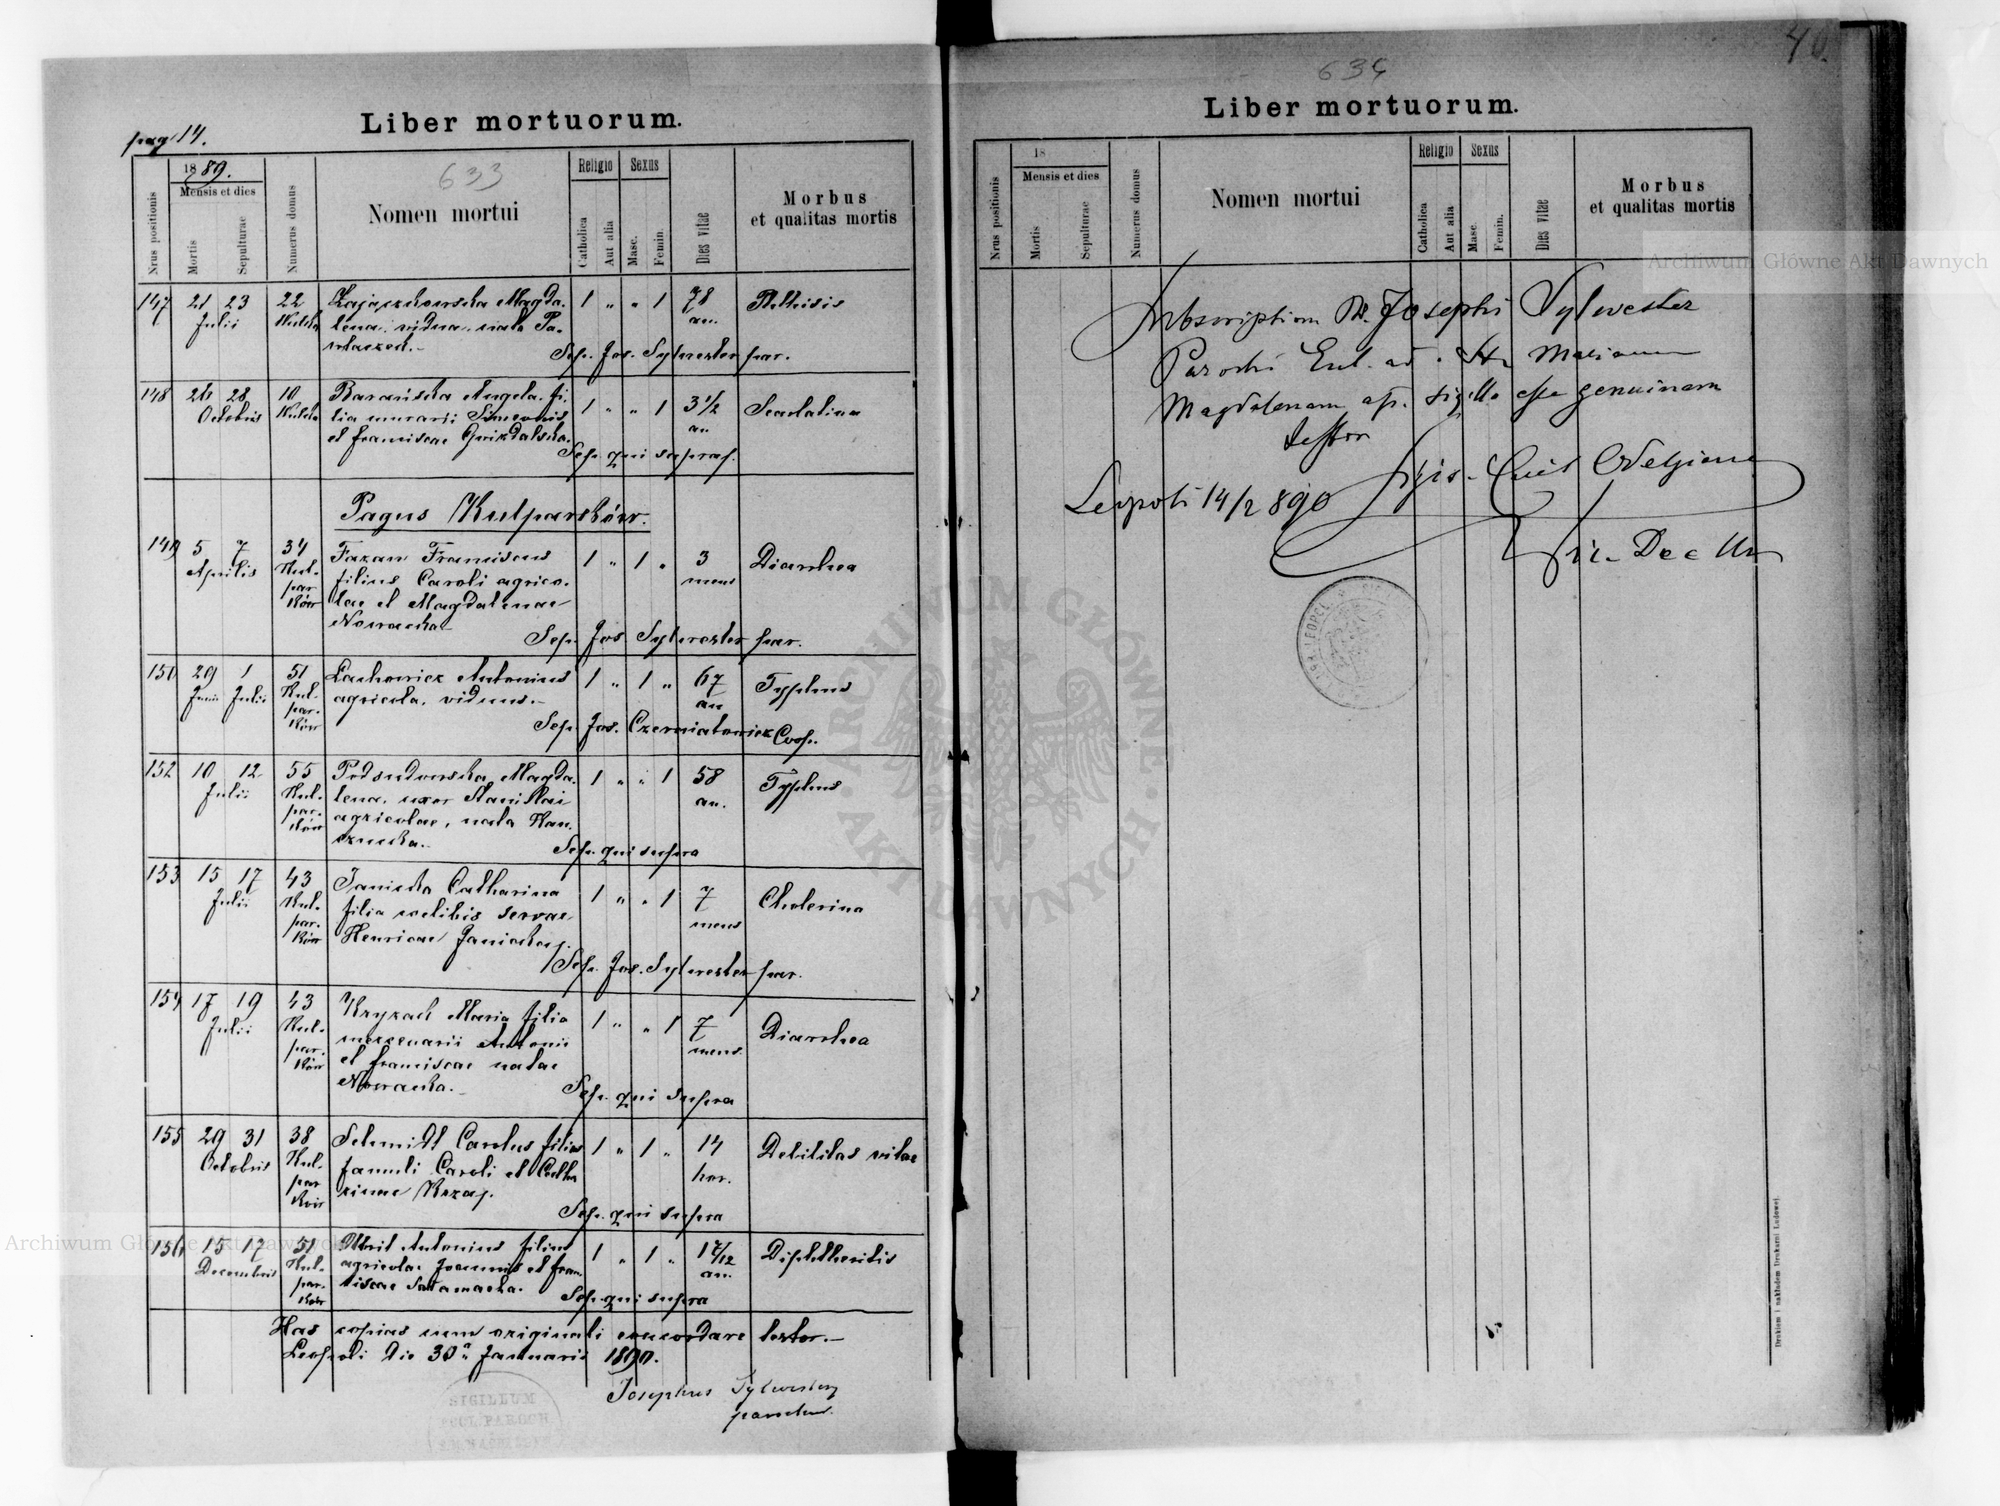 pag 14.
Liber mortuorum.
Nrus positionis
1889.
Mensis et dies
Mortis
Sepulturae
Numerus domus
633
Nomen mortui
Religio
Catholica
Aut alia
Sexus
Masc.
Femin.
Dies vitae
Morbus
et qualitas mortis
147 21 23 22 Zajączkowska Magda- 1 " " 1 78 Phthisis
Julii Kulcka lena, vidua, nata Pa- an.
właczek.-
Sep. Jos. Sylwester par.
148 26 28 10 Barańska Angela, fi- 1 " " 1 3 1/2 Scarlatina
Octobris lia murarii Simeonis an.
et Franciscae Gwizdalska.
Sep. qui supra
Pagus Kulparków.
149 5 7 34 Fazan Franciscus 1 " 1 " 3 Diarrhea
Aprilis Kul- filius Caroli agrico- mens
par lae et Magdalenae
ków Nowacka
Sep. Jos Sylwester par.
150 29 1 51 Lachowicz Antonius 1 " 1 " 67 Typhus
Junii Julii Kul- agricola, viduus.- an
par-
ków
Sep. Jos. Czerniatowicz Coop.
152 10 12 55 Podsudowska Magda- 1 " " 1 58 Typhus
Julii Kul- lena, uxor Stanislai an.
par- agricolae, nata
ków
Sep. qui supra
153 15 17 43 Janicka Catharina 1 " " 1 7 Cholerina
Julii Kul- filia coelibis servae mens
par- Henricae Janicka
ków
Sep. Jos. Sylwester par.
154 17 19 43 Kryzach Maria filia 1 " " 1 7 Diarrhea
Julii Kul- mercenarii Antonii mens.
par- et Franciscae natae
ków Nowacka.-
Sep. qui supra
155 29 31 38 Schmidt Carolus filius 1 " 1 " 14 Debilitas vitae
Octobris Kul- famuli Caroli et Catha hor.
par rinae
ków
Sep. qui supra
156 15 17 51 Antonius filius 1 " 1 " Diphtheritis
Decembris Kul- agricolae Joannis et Fran an.
par- ciscae Salamacha.
ków Sep. qui supra
Has copias cum originali concordare testor.-
Leopoli die 30a Januarii 1890.
Josephus Sylwester
parochus.
SIGILLUM
ECCL. PAROCH
40.
634
Liber mortuorum.
Nrus positionis
18
Mensis et dies
Mortis
Sepulturae
Numerus domus
Nomen mortui
Religio
Catholica
Aut alia
Sexus
Masc.
Femin.
Dies vitae
Morbus
et qualitas mortis
Subscriptionem Josephi Sylwester
Parochi Eccl. ad Stm Mariam
Magdalenam sigillo esse genuinam
testor
Leopoli 14/2 890
Drukiem i nakładem Drukarni Ludowej.
Archiwum Główne Akt Dawnych
ARCHIWUM GŁÓWNE · AKT DAWNYCH ·
Archiwum Główne Akt Dawnych